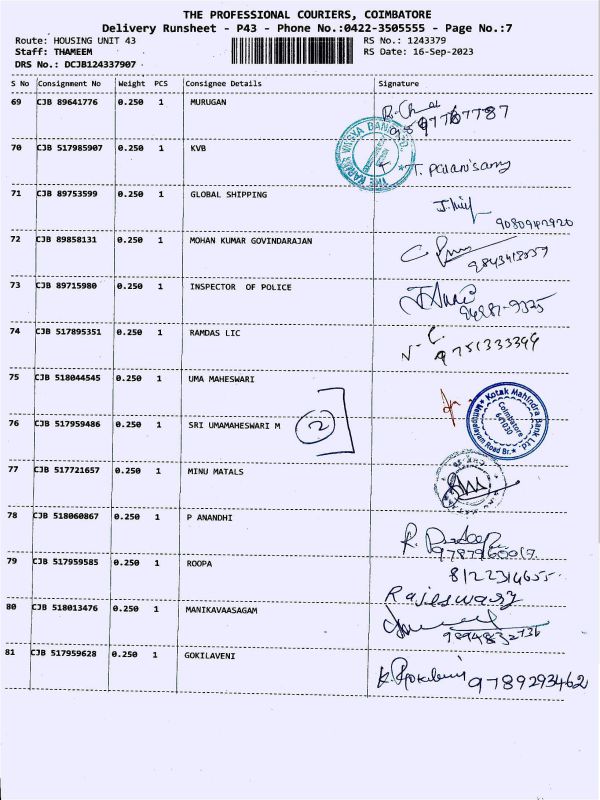 THE PROFESSIONAL COURIERS, COIMBATORE
Delivery Runsheet - P43 - Phone No.:0422-3505555 - Page No.:7
Route: HOUSING UNIT 43 RS No.: 1243379
Staff: THAMEEM RS Date: 16-Sep-2023
DRS No.: DCJB124337907
S No Consignment No Weight PCS Consignee Details Signature
69 CJB 89641776 0.250 1 MURUGAN
70 CJB 517985907 0.250 1 KVB
THE KARUR VYSYA BANK LTD
T. Palanisamy
71 CJB 89753599 0.250 1 GLOBAL SHIPPING
9080942920
72 CJB 89858131 0.250 1 MOHAN KUMAR GOVINDARAJAN
73 CJB 89715980 0.250 1 INSPECTOR OF POLICE
74 CJB 517895351 0.250 1 RAMDAS LIC
9751333399
75 CJB 518044545 0.250 1 UMA MAHESWARI
76 CJB 517959486 0.250 1 SRI UMAMAHESWARI M 2
Kotak Mahindra Bank Ltd
Coimbatore
641030
Road Br.
77 CJB 517721657 0.250 1 MINU MATALS
78 CJB 518060867 0.250 1 P ANANDHI
79 CJB 517959585 0.250 1 ROOPA
8122314655
Rajeswary
80 CJB 518013476 0.250 1 MANIKAVAASAGAM
9894832736
81 CJB 517959628 0.250 1 GOKILAVENI
9789293462